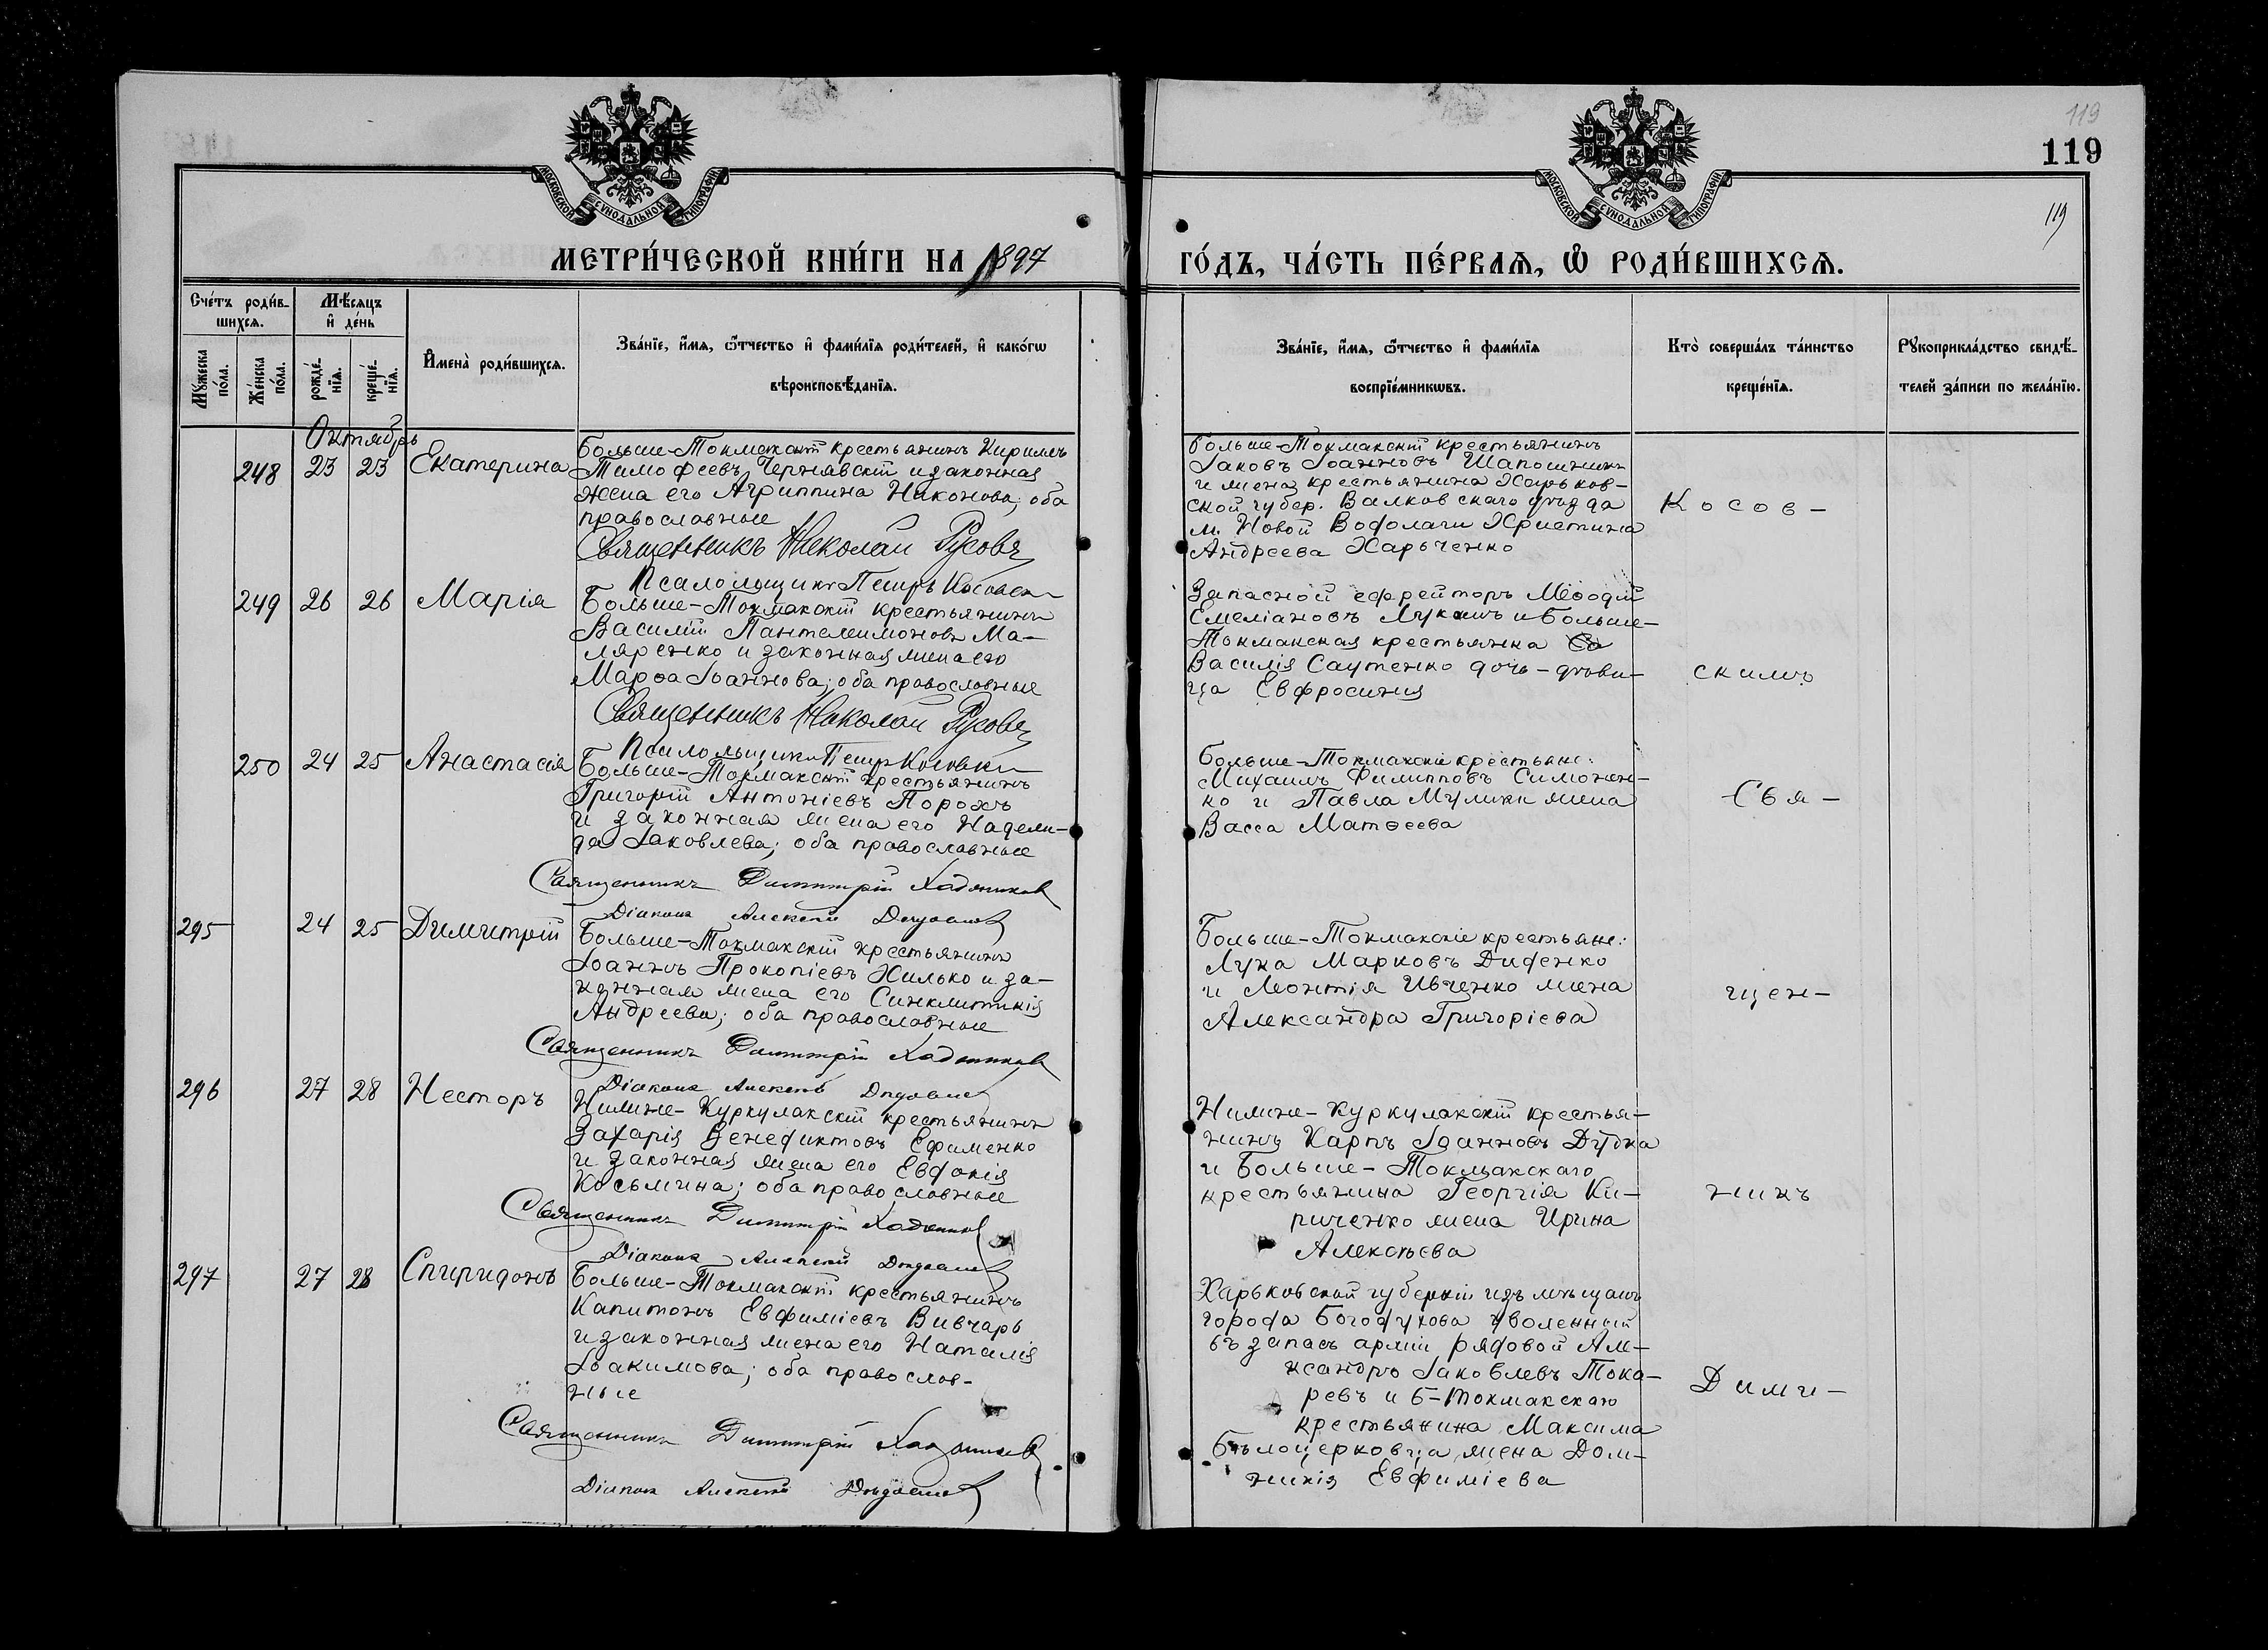 119
119
119
МОСКОВСКОЙ СѴНОДАЛЬНОЙ ТИПОГРАФИИ
МОСКОВСКОЙ СѴНОДАЛЬНОЙ ТИПОГРАФИИ
МЕТРИ́ЧЕСКОЙ КНИ́ГИ НА 1897
ГО́ДЪ, ЧА́СТЬ ПЕ́РВАѦ, Ѽ РОДИ́ВШИХСѦ.
Сче́тъ роди́в-
шихсѧ.
Мѣ́сѧцъ
и҆ де́нь
Мꙋ́жеска
по́ла.
Же́нска
по́ла.
рожде́-
нїѧ.
креще́-
нїѧ.
И҆мена̀ роди́вшихсѧ.
Зва́нїе, и҆́мѧ, ѻ҆́тчество и҆ фами́лїѧ роди́телей, и҆ како́гѡ
вѣроисповѣ́данїѧ.
Зва́нїе, и҆́мѧ, ѻ҆́тчество и҆ фами́лїѧ
воспрїе́мникѡвъ.
Кто̀ соверша́лъ та́инство
креще́нїѧ.
Рꙋкоприкла́дство свидѣ́-
телей за́писи по жела́нїю.
Октябрь
248 23 23 Екатерина
Больше-Токмакскій крестьянинъ Кирилъ
Тимофеевъ Чернявскій и законная
жена его Агриппина Никонова; оба
православные
Священникъ Николай Русовъ
Псаломщикъ Петръ
Больше-Токмакскій крестьянинъ
Іаковъ Іоанновъ Шапошникъ
и жена крестьянина Харьков-
ской губер. Валковскаго уѣзда
м. Новой Водолаги Христина
Андреева Харьченко
Косов-
249 26 26 Марія
Больше-Токмакскій крестьянинъ
Василій Пантелеимоновъ Ма-
ляренко и законная жена его
Марѳа Іоаннова; оба православные
Священникъ Николай Русовъ
Псаломщикъ Петръ
Запасной ефрейторъ Меѳодій
Емеліановъ Лукашъ и Больше-
Токмакская крестьянка
Василія Саутенко дочь-дѣви-
ца Евфросинія
скимъ
250 24 25 Анастасія
Больше-Токмакскій крестьянинъ
Григорій Антоніевъ Порохъ
и законная жена его Надеж-
да Іаковлева; оба православные
Священникъ Димитрій
Діаконъ Алексѣй
Больше-Токмакскіе крестьяне:
Михаилъ Филипповъ Симонен-
ко и Павла Мулики жена
Васса Матѳеева
Свя-
295 24 25 Димитрій
Больше-Токмакскій крестьянинъ
Іоаннъ Прокопіевъ Хилько и за-
конная жена его Синклитикія
Андреева; оба православные
Священникъ Димитрій
Діаконъ Алексѣй
Больше-Токмакскіе крестьяне:
Лука Марковъ Диденко
и Леонтія Ивченко жена
Александра Григоріева
щен-
296 27 28 Несторъ
Нижне-Куркулакскій крестьянинъ
Захарія Венедиктовъ Ефименко
и законная жена его Евдокія
Косьмина; оба православные
Священникъ Димитрій
Діаконъ Алексѣй
Нижне-Куркулакскій крестья-
нинъ Карпъ Іоанновъ Дудка
и Больше-Токмакскаго
крестьянина Георгія Ки-
риченко жена Ирина
Алексѣева
никъ
297 27 28 Спиридонъ
Больше-Токмакскій крестьянинъ
Капитонъ Евфиміевъ Вивчарь
и законная жена его Наталія
Іоакимова; оба православ-
ные
Священникъ Димитрій
Діаконъ Алексѣй
Харьковской губерніи изъ мѣщанъ
города Богодухова уволенный
въ запасъ арміи рядовой Але-
ксандръ Іаковлевъ Тока-
ревъ и Б-Токмакскаго
крестьянина Максима
Бѣлоцерковца жена Дом-
никія Евфиміева
Дими-